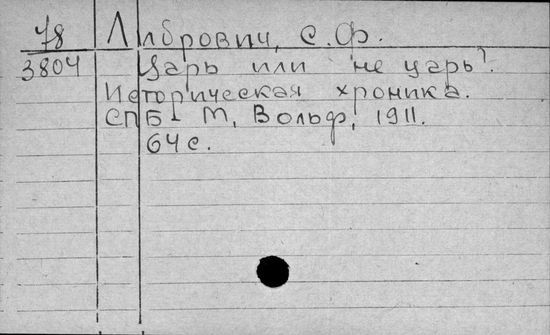 78 Либрович, С.Ф.
3804 Царь или не царь?
Историческая хроника.
СПБ - М, Вольф, 1911.
64 с.